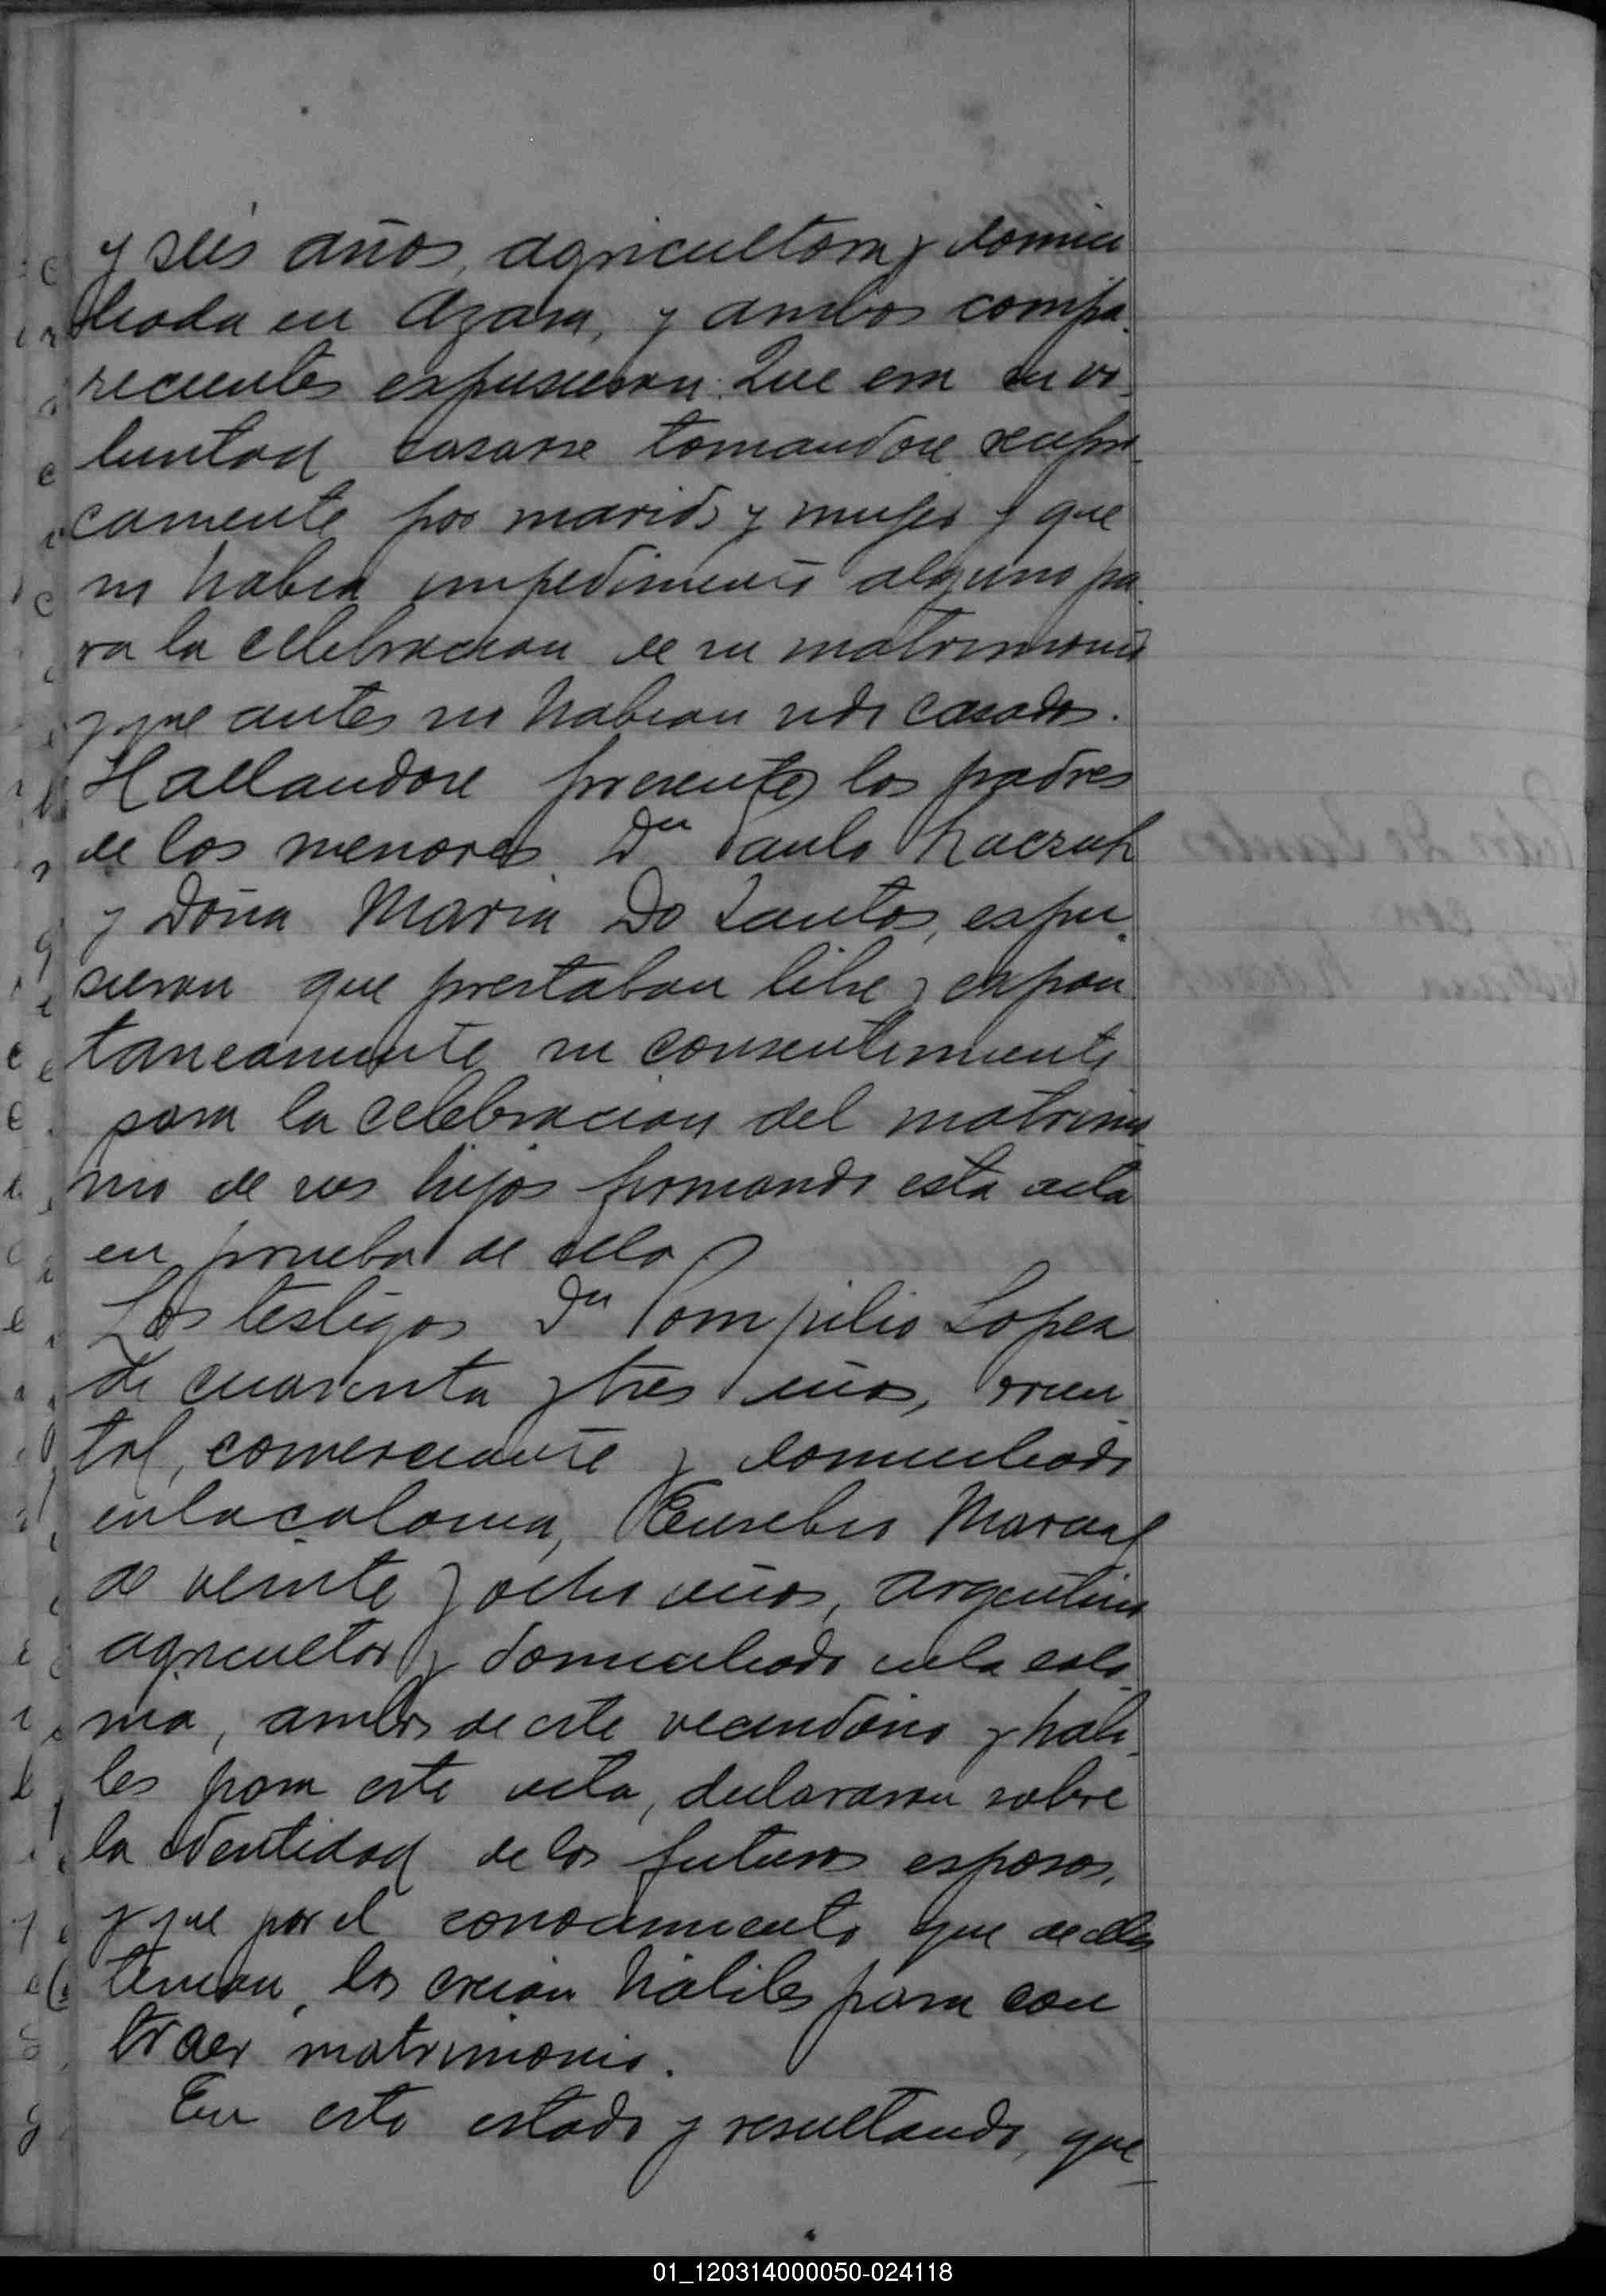 y seis años, agricultora y domici
liada en Azara, y ambos compa-
recientes expusieron: Que era su vo-
luntad casarse tomandose recipro-
camente por marido y mujer y que
no habia impedimento alguno pa-
ra la celebracion de su matrimonio
y que antes no habian sido casados.
Hallandose presentes los padres
de los menores Dn Paulo
y Doña Maria Do Santos, expu-
sieron que prestaban libre y espon
taneamente su consentimiento
para la celebracion del matrimo-
nio de sus hijos firmando esta acta
en prueba de ello
Los testigos Dn Pompilio Lopez
de cuarenta y tres años, orien-
tal, comerciante y domiciliado
en la colonia, Eusebio
de veinte y ocho años, argentino
agricultor y domiciliado en la colo-
nia, ambos de este vecindario y habi-
les para este acto, declararon sobre
la identidad de los futuros esposos,
y que por el conocimiento que de ellos
tenian, los creian habiles para con
traer matrimonio.
En este estado y resultando, que
01_120314000050-024118